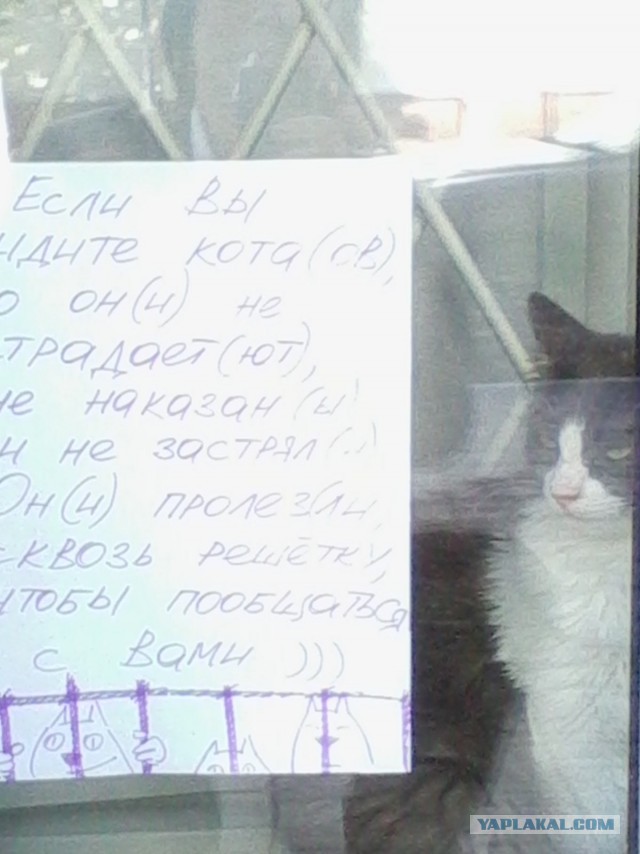 Если вы
идите кота(ов),
о он(и) не
традает(ют),
не наказан(ы)
и не застрял(и)
Он(и) пролез(ли)
сквозь решётку,
чтобы пообщаться
с Вами )))
YAPLAKAL.COM